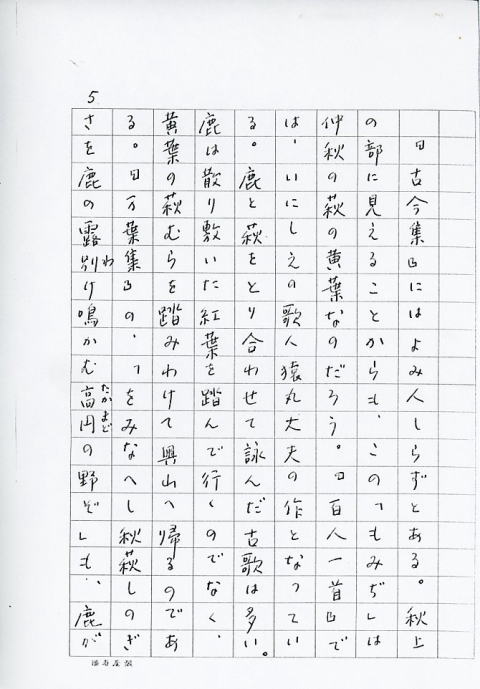 5
『古今集』にはよみ人しらずとある。秋上
の部に見えることからも、この「もみぢ」は
仲秋の萩の黄葉なのだろう。『百人一首』で
は、いにしえの歌人猿丸大夫の作となってい
る。鹿と萩をとり合わせて詠んだ古歌は多い。
鹿は散り敷いた紅葉を踏んで行くのでなく、
黄葉の萩むらを踏みわけて奥山へ帰るのであ
る。『万葉集』の、「をみなへし秋萩しのぎ
わ
たかまど
さを鹿の露別け鳴かむ高円の野ぞ」も、鹿が
満寿屋製